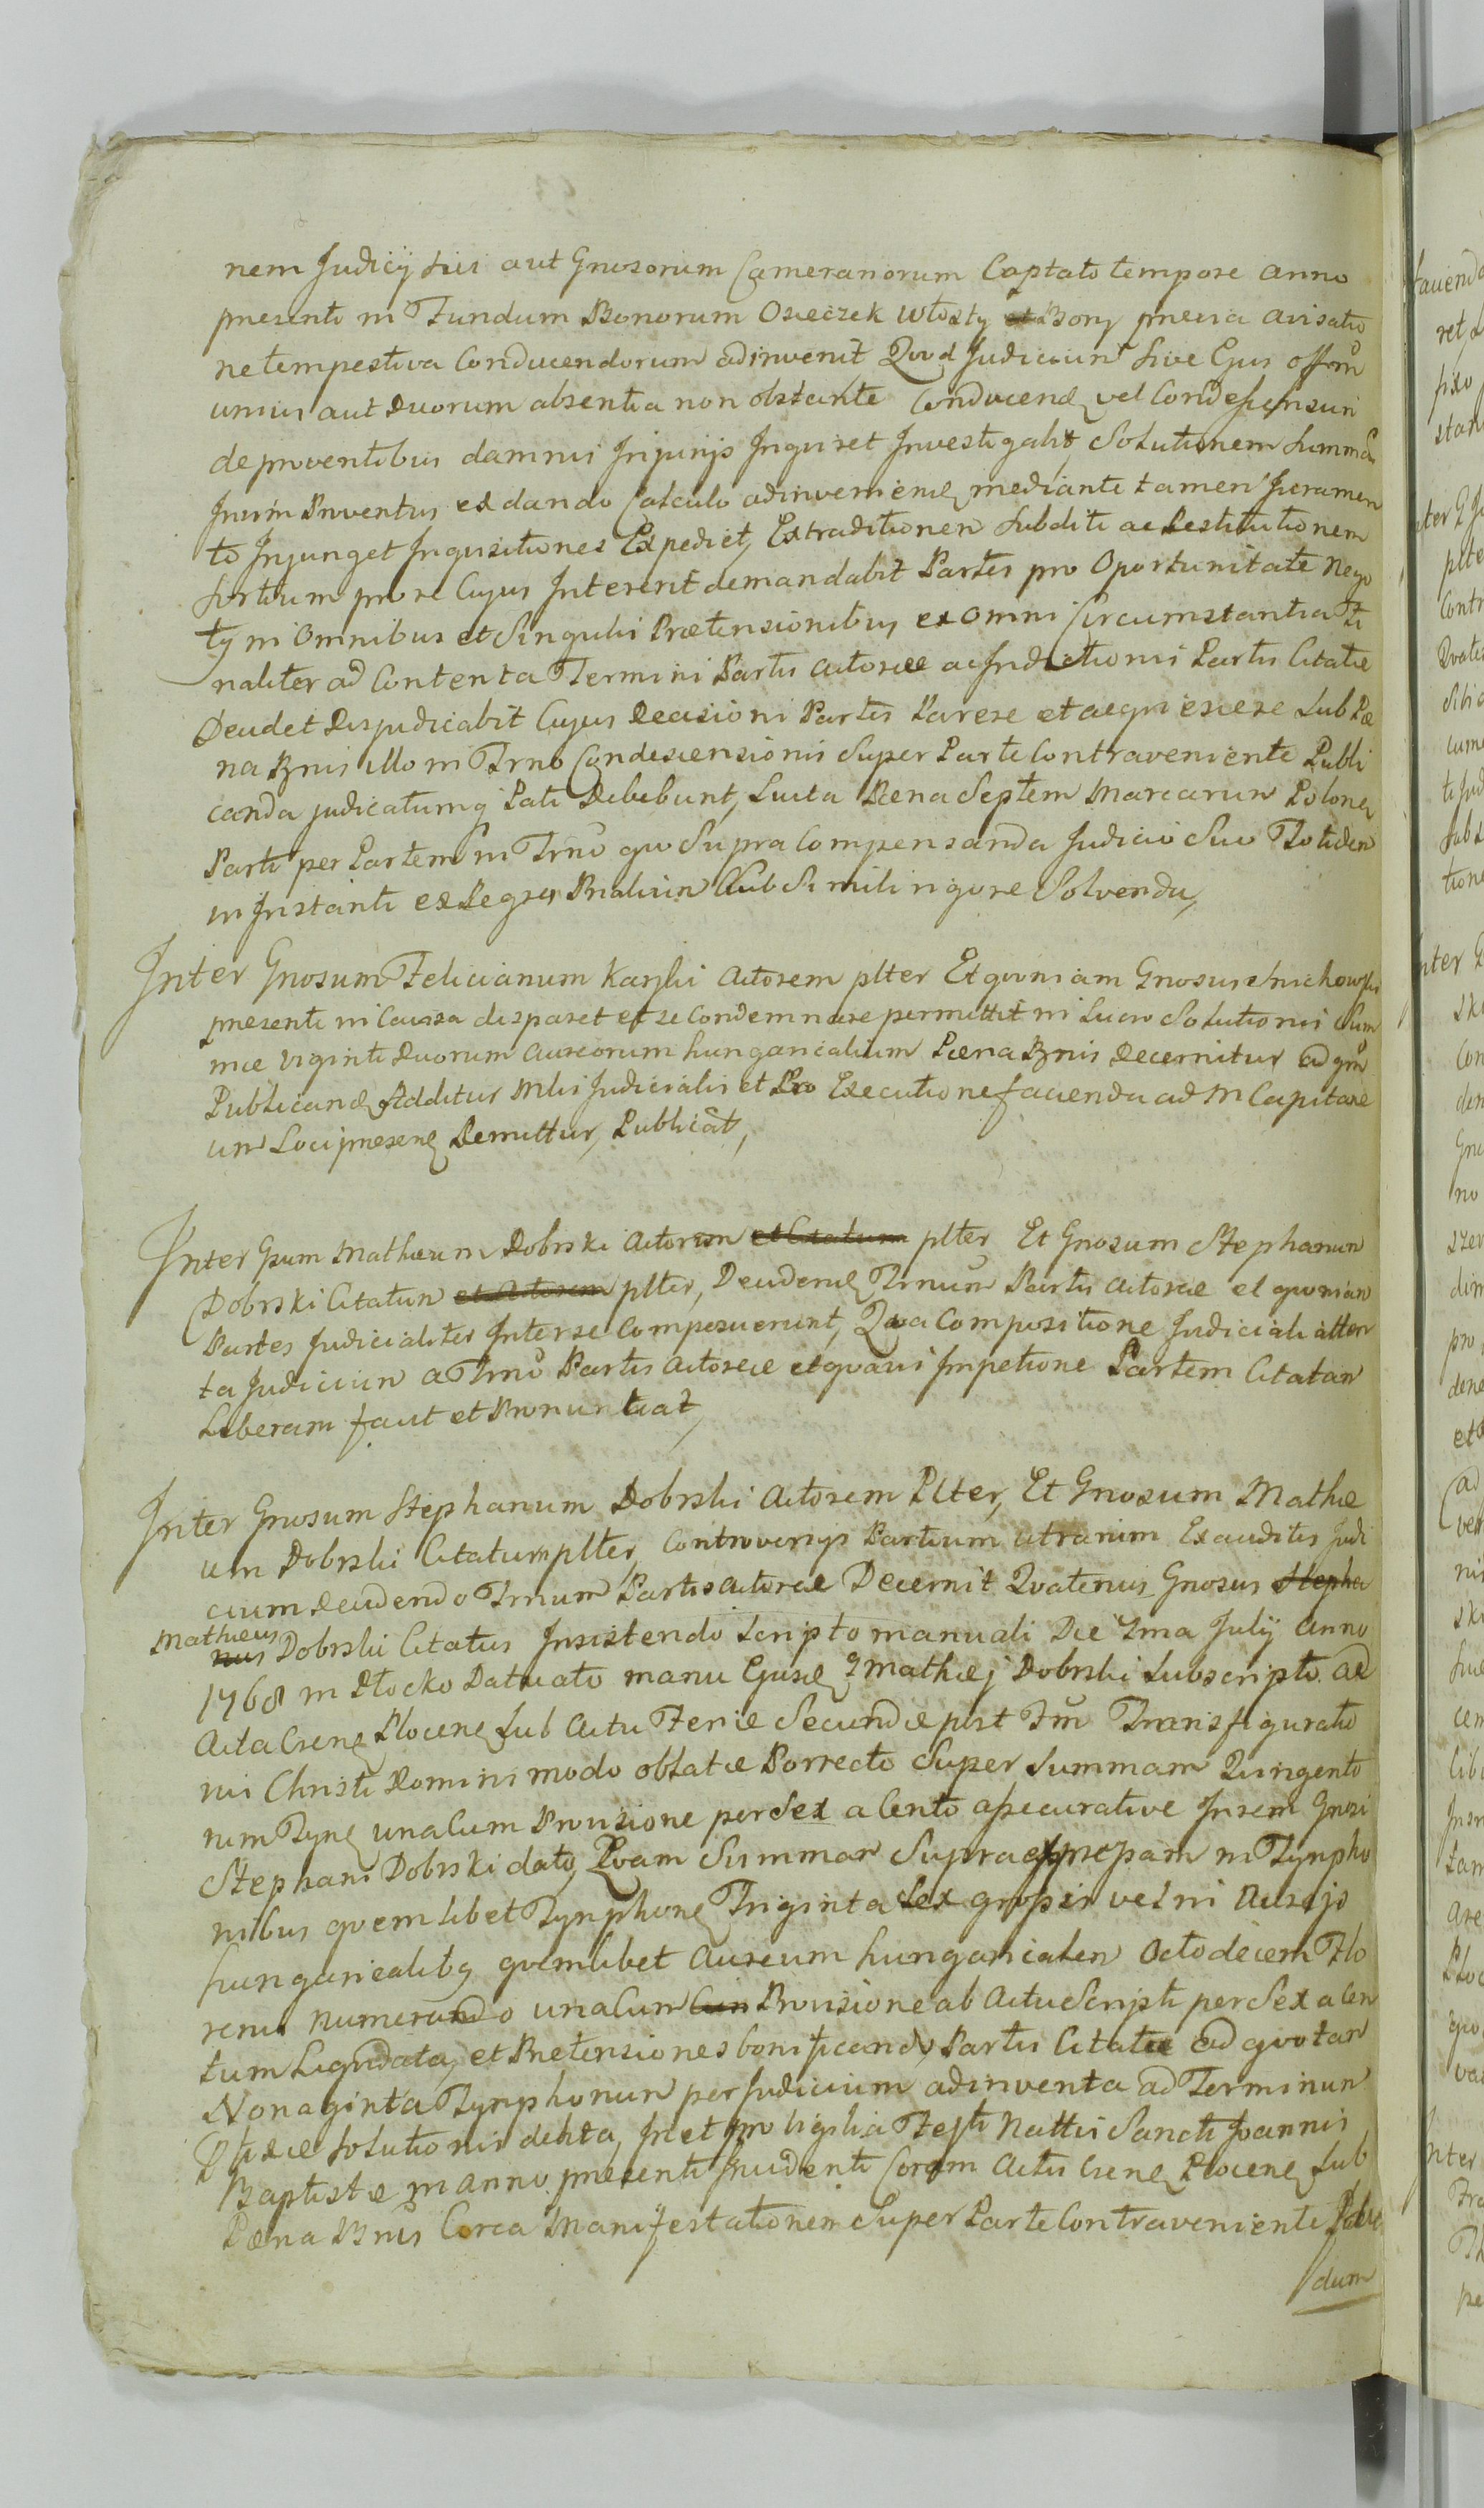 nem Judicij sui aut Gnosorum Cameranorum Captato tempore anno
presenti in Fundum Bonorum Osieczek Włosty et Bory previa avisatio
ne tempestiva Conducendorum adinvenit Quod Judicium sive Ejus offm
unius aut Duorum absentia non obstante Conducend vel Condescensuri
de proventibus damnis Injurijs Inquiret Investigabit Solutionem Summar
Proventus ex dando Calculo adinveniend mediante tamen Juramen
to Injunget Inquisitiones Expediet, Extraditionem Subditi ac Restitutionem
sortium pro re Cujus Intererit demandabit Partes pro Oportunitate Nego
tij in Omnibus et Singulis Prætensionibus ex omni Circumstantia Fi
naliter ad Contenta Termini Partis Actoreæ ac Inductionis Partis Citatæ
Deudet Disjudicabit Cujus Decisioni Partes Parere et acquiescere sub Pæ
na Bnis illo in Trno Condescensionis Super Parte Contraveniente Publi
canda judicatumq Pati Debebunt, Luita Pæna Septem Marcarum Polon
Parti per Partem in Trno quo Supra Compensanda Judicio Suo Totiden
in Instanti ex Regres Bnalium Sub Simili rigore Solvenda,
Inter Gnosum Felicianum Karski Actorem plter Et quoniam Gnosus
presenti in Causa disparet et se Condemnare permittit in Lucro Solutionis Sum
mæ viginti Duorum aureorum hungaricalium Pæna Bnis Decernitur ad qm
Publicand Additur Mlis Judicialis et Pro Executione facienda ad M Capitane
um Loci presen Remittur, Publicat,
Inter Gsum Mathæum Dobrski Actorem et Citatum plter Et Gnosum Stephanum
Dobrski Citatum et Actorem plter, Deudend Trnum Partis Actoreæ et quoniam
Partes Judicialiter Inter se Composuerunt, Qua Compositione Judiciali atten
ta Judicium a Trno Partis Actoreæ et quavis Impetione Partem Citatam
Liberam facit et Pronuntiat,
Inter Gnosum Stephanum Dobrski Actorem Plter, Et Gnosum Mathæ
um Dobrski Citatum plter, Controversijs Partium utrarum Exauditis Judi
cium Deudendo Trnum Partis Actoreæ Decernit Quatenus Gnosus Stepha
Mathæus
nus Dobrski Citatus Insistendo Scripto manuali Die 7ma Julij Anno
1768 in Płocko Datuato manu Ejusd G Mathæj Dobrski Subscripto ad
Acta Csren Plocen sub Actu Feriæ Secundæ post Fm Transfiguratio
nis Christi Domini modo oblatæ Porrecto Super Summam Quingento
rum Tynf unacum Provisione per Sex a Cento assecurative In rem Gnosi
Stephani Dobrski dato, Quam Summam Supraexpressam in Tynpho
nibus quemlibet Tynphon Triginta Sex grossis vel in Aureis
hungaricalibq quemlibet Aureum hungaricalem Octodecem Flo
renis numerando unacum Cum Provisione ab Actu Scripti per Sex a Cen
tum Liquidata, et Pretensiones bonificandæ Partis Citatæ ad quotam
Nonaginta Tynphonum per Judicium adinventa ad Terminum
solutionis debita, In et pro Vigilia Festi Nattis Sancti Joannis
Baptistæ in anno presenti Incidenti Coram Actis Csren Plocen Sub
Pæna Bnis Circa Manifestationem Super Parte Contraveniente
dum